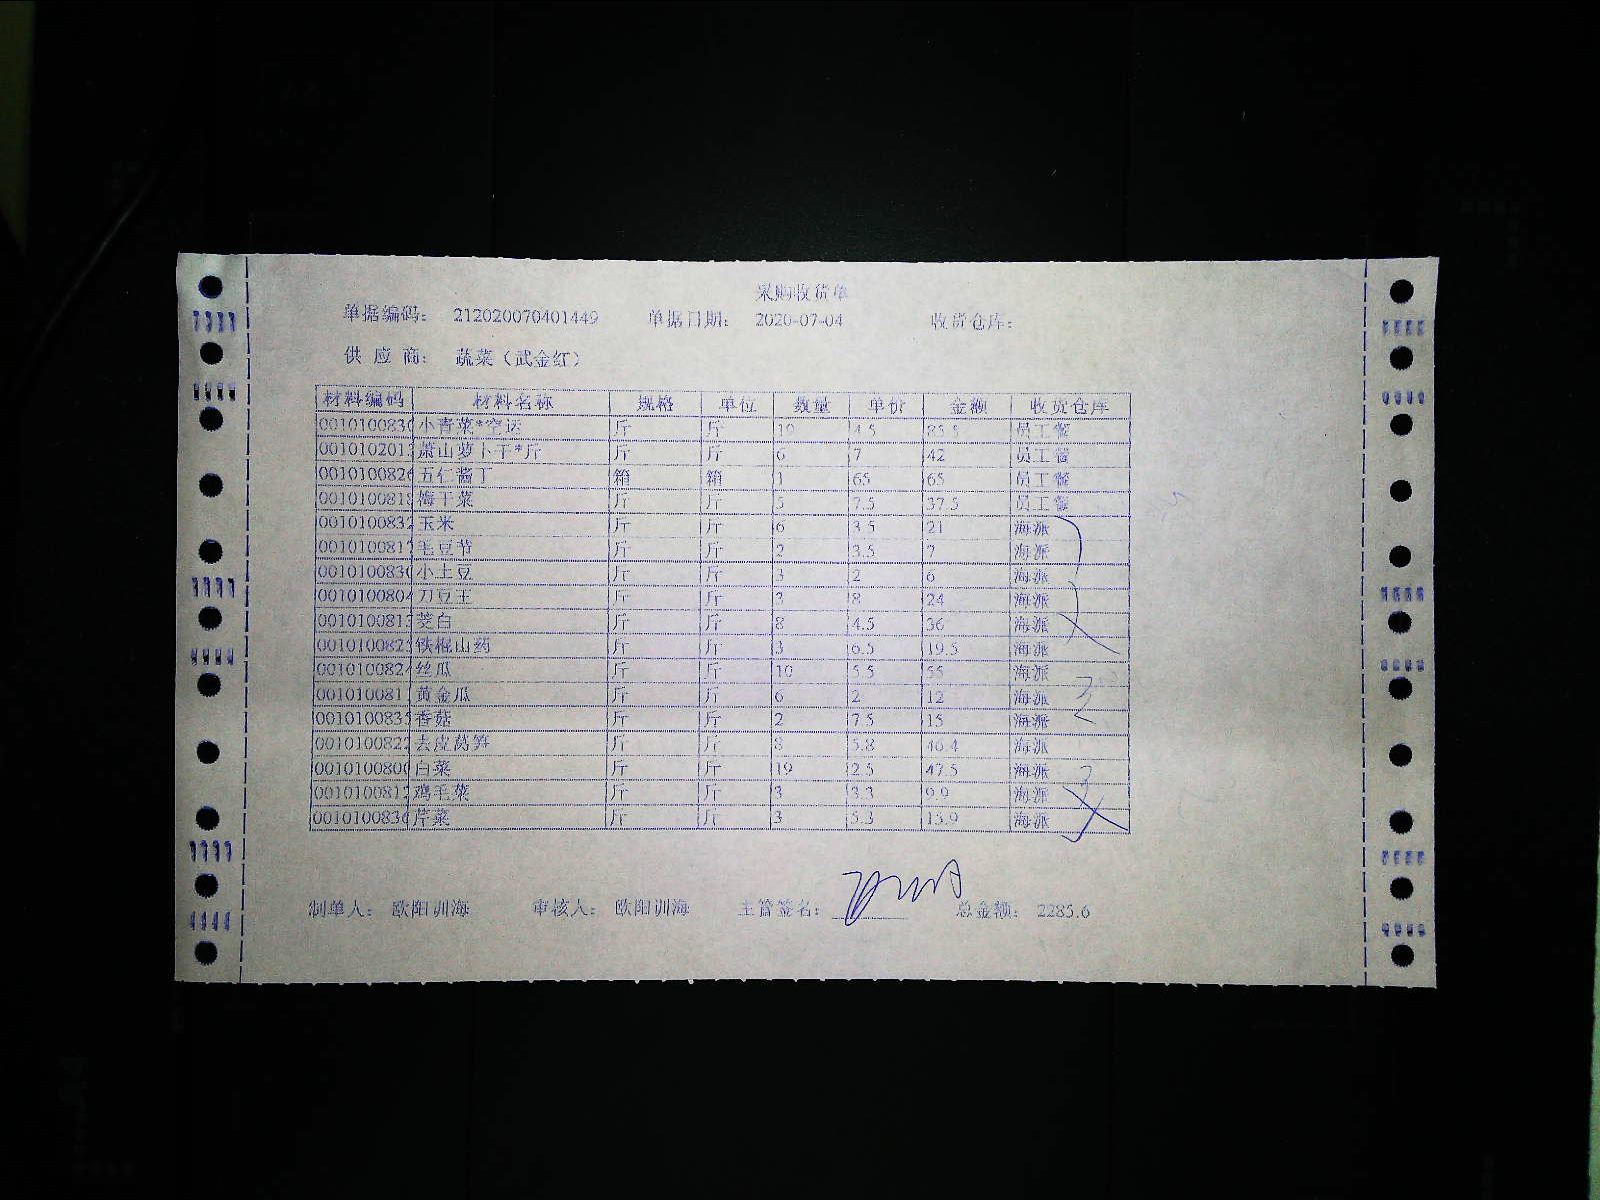 采购收货单
单据编码: 212020070401449 单据日期: 2020-07-04 收货仓库:
供 应 商: 蔬菜（武金红）
材料编码 材料名称 规格 单位 数量 单价 金额 收货仓库
小青菜*空运 斤 斤 19 4.5 85.5 员工餐
001010201 萧山萝卜干*斤 斤 斤 6 7 42 员工餐
001010082 五仁酱丁 箱 箱 1 65 65 员工餐
001010081 梅干菜 斤 斤 5 7.5 37.5 员工餐
001010083 玉米 斤 斤 6 3.5 21 海派
001010081 毛豆节 斤 斤 2 3.5 7 海派
001010083 小土豆 斤 斤 3 2 6 海派
001010080 刀豆王 斤 斤 3 8 24 海派
001010081 茭白 斤 斤 8 4.5 36 海派
001010082 铁棍山药 斤 斤 3 6.5 19.5 海派
001010082 丝瓜 斤 斤 10 5.5 55 海派
001010081 黄金瓜 斤 斤 6 2 12 海派
001010083 香菇 斤 斤 2 7.5 15 海派
001010082 去皮莴笋 斤 斤 8 5.8 46.4 海派
001010080 白菜 斤 斤 19 2.5 47.5 海派
001010081 鸡毛菜 斤 斤 3 3.3 9.9 海派
001010083 芹菜 斤 斤 3 5.3 15.9 海派
制单人: 欧阳训海 审核人: 欧阳训海 主管签名: 总金额: 2285.6